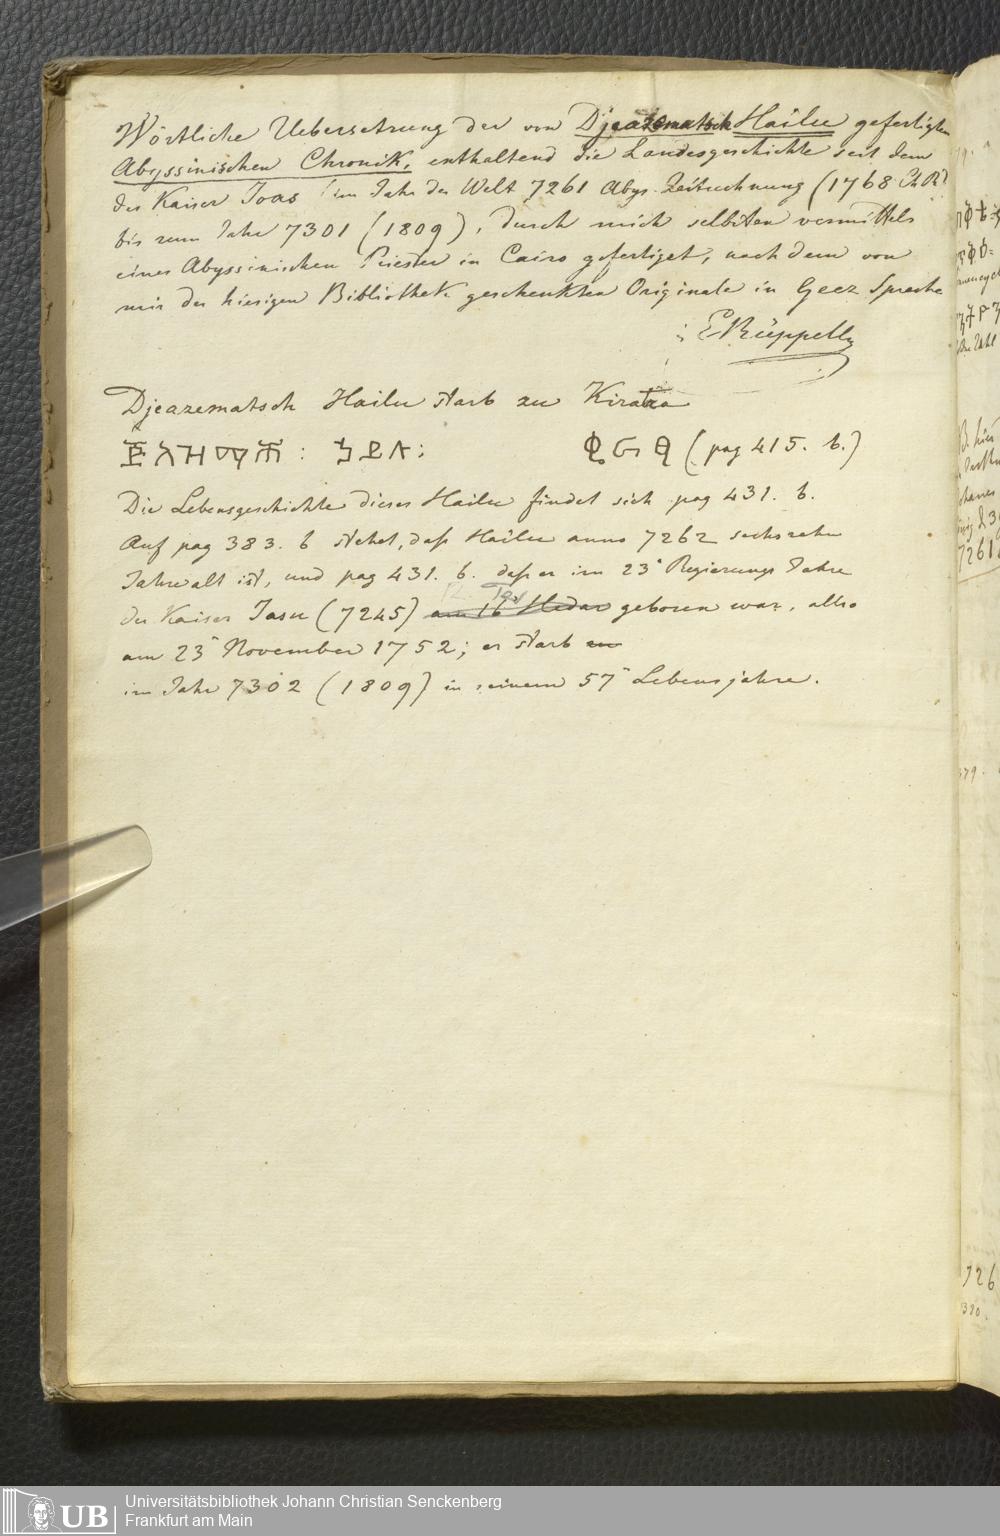 Wörtliche Uebersetzung der von Djeazematsch Hailu gefertigten
Abyssinischen Chronik, enthaltend die Landesgeschichte seit dem
des Kaiser Joas im Jahr der Welt 7261 Abys. Zeitrechnung (1768 Ch
bis zum Jahr 7301 (1809), durch mich selbsten vermittels
eines Abyssinischen Priester in Cairo gefertiget, nach dem von
mir der hiesigen Bibliothek geschenkten Originale in Geez Sprache
E Rüppell
Djeazematsch Hailu starb zu Kirataa
ደጃዝማች : ኃይሉ : ቂራዛ (pag 415. b.)
Die Lebensgeschichte dieses Hailu findet sich pag 431. b.
Auf pag 383. b stehet, daß Hailu anno 7262 sechszehn
Jahre alt ist, und pag 431. b. daß er im 23ᵗ Regierungs Jahre
des Kaiser Jasu (7245) am 16 Hedar geboren war, also
am 23ᵗ November 1752; er starb
im Jahr 7302 (1809) in seinem 57ᵗ Lebensjahre.
7261
379.
726
Universitätsbibliothek Johann Christian Senckenberg
Frankfurt am Main
UB